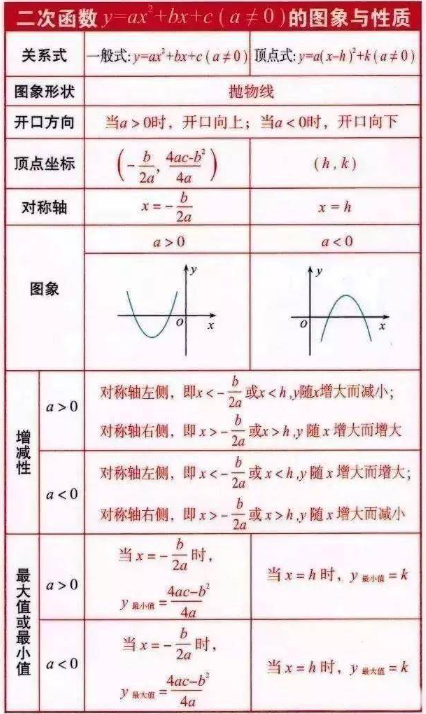 二次函数 y=ax²+bx+c (a≠0) 的图象与性质
关系式 一般式: y=ax²+bx+c (a≠0) 顶点式: y=a(x-h)²+k (a≠0)
图象形状 抛物线
开口方向 当a>0时，开口向上；当a<0时，开口向下
顶点坐标 (-b/2a, 4ac-b²/4a) (h,k)
对称轴 x=-b/2a x=h
图象 a>0 a<0
y O x y O x
增减性
a>0 对称轴左侧，即x<-b/2a或x<h,y随x增大而减小；
对称轴右侧，即x>-b/2a或x>h,y随x增大而增大
a<0 对称轴左侧，即x<-b/2a或x<h,y随x增大而增大；
对称轴右侧，即x>-b/2a或x>h,y随x增大而减小
最大值或最小值
a>0 当x=-b/2a时，
y最小值=4ac-b²/4a
当x=h时，y最小值=k
a<0 当x=-b/2a时，
y最大值=4ac-b²/4a
当x=h时，y最大值=k